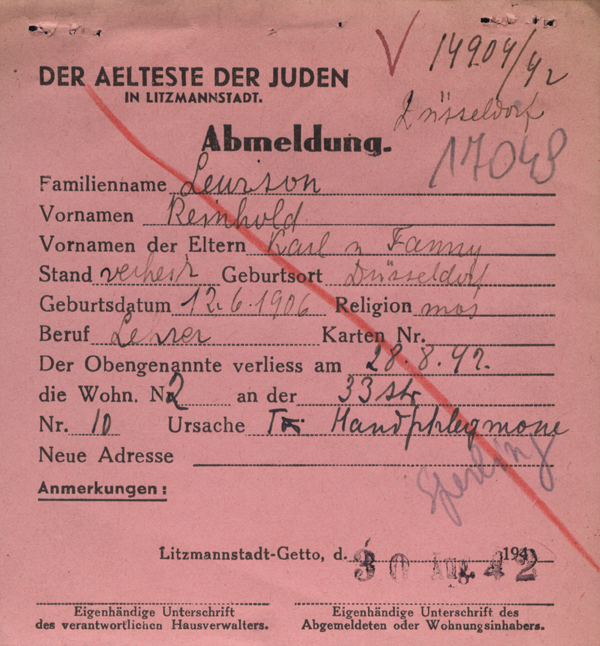 14904/42
DER AELTESTE DER JUDEN
IN LITZMANNSTADT.
Düsseldorf
Abmeldung.
17048
Familienname Lewison
Vornamen Reinhold
Vornamen der Eltern Karl u Fanny
Stand verheir Geburtsort Düsseldorf
Geburtsdatum 12.6.1906 Religion mos
Beruf Lehrer Karten Nr.
Der Obengenannte verliess am 28.8.42.
die Wohn. Nr. 2 an der 33 str
Nr. 10 Ursache Handphlegmone
Neue Adresse
Sperling
Anmerkungen:
Litzmannstadt-Getto, d. 30 Aug. 42 194
Eigenhändige Unterschrift des verantwortlichen Hausverwalters.
Eigenhändige Unterschrift des Abgemeldeten oder Wohnungsinhabers.